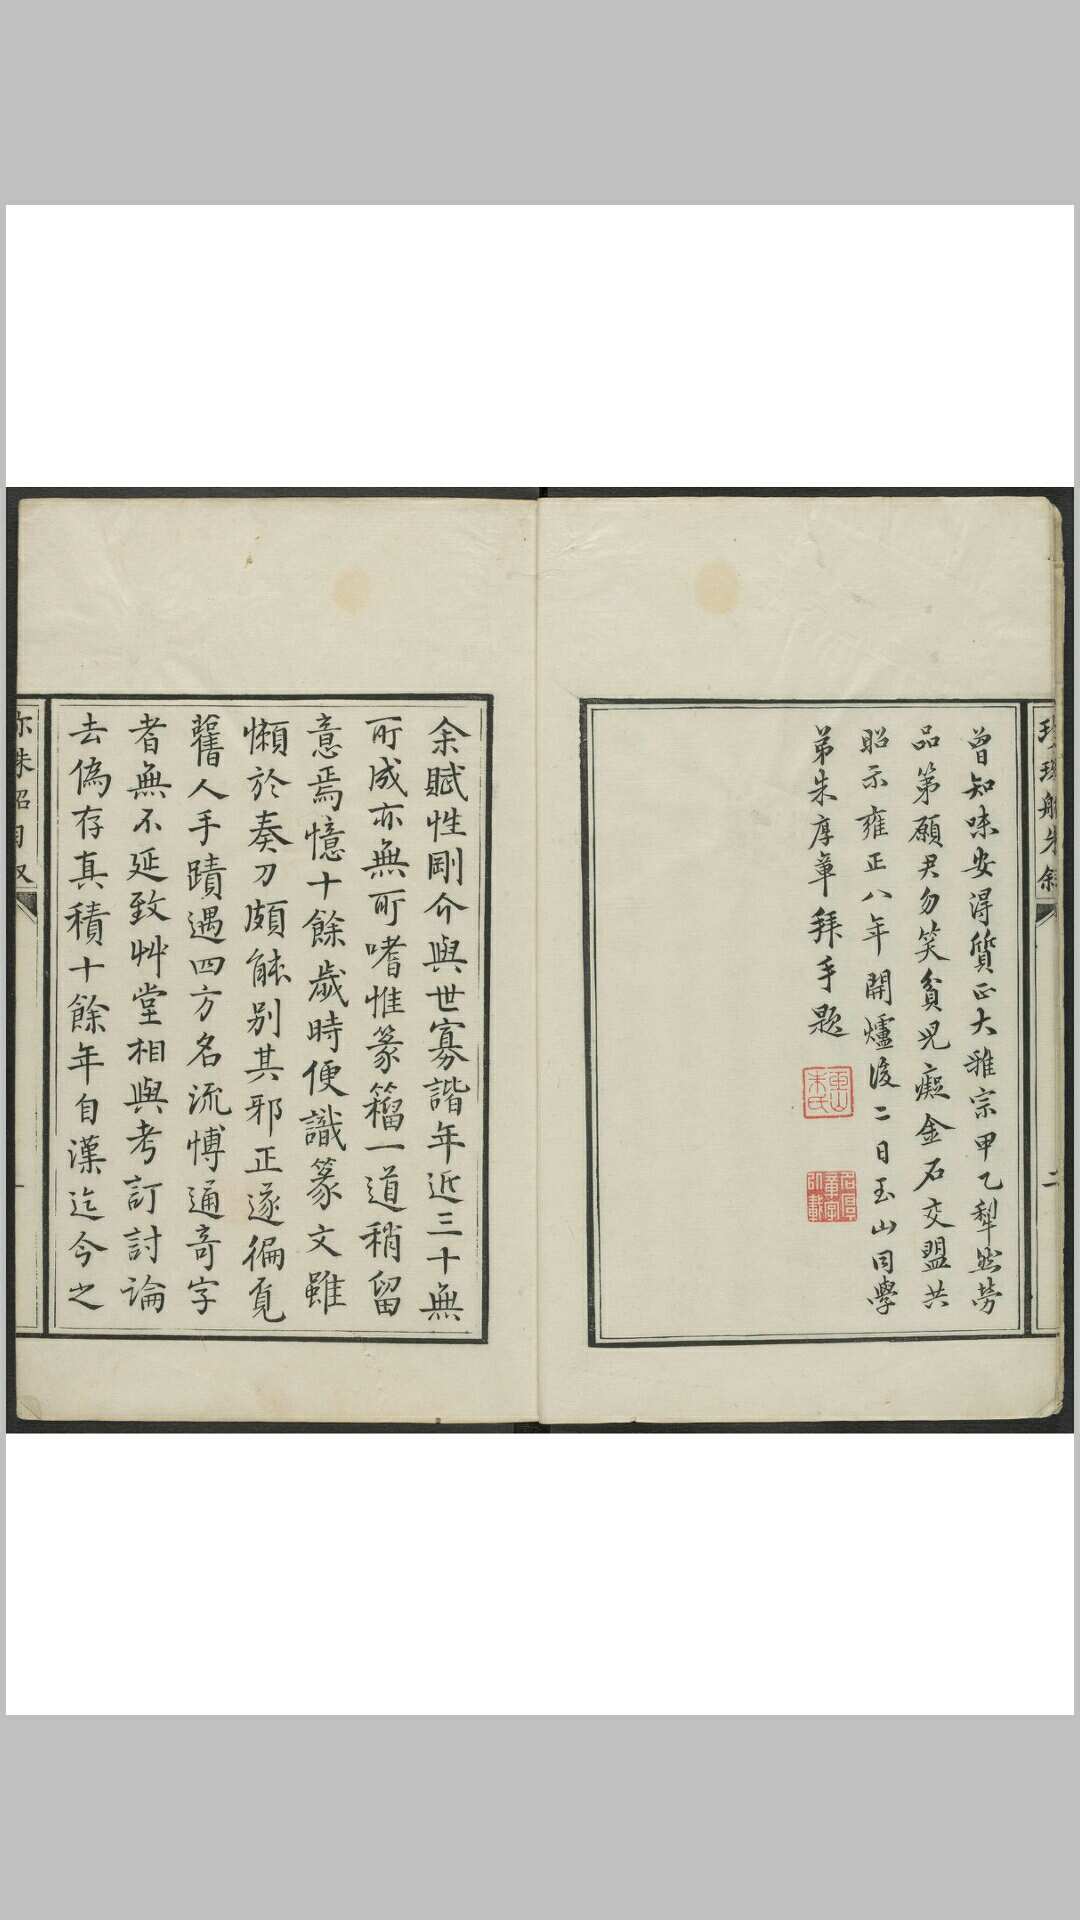 曾知味安得質正大雅宗甲乙犁然勞
品第願君勿笑貧兒癡金石交盟共
昭示雍正八年開爐後二日玉山同學
弟朱厚章拜手題
二
余賦性剛介與世寡諧年近三十無
所成亦無所嗜惟篆籀一道稍留
意焉憶十餘歲時便識篆文雖
懶於奏刀頗能别其邪正遂徧覓
舊人手蹟遇四方名流博通奇字
者無不延致艸堂相與考訂討論
去偽存真積十餘年自漢迄今之